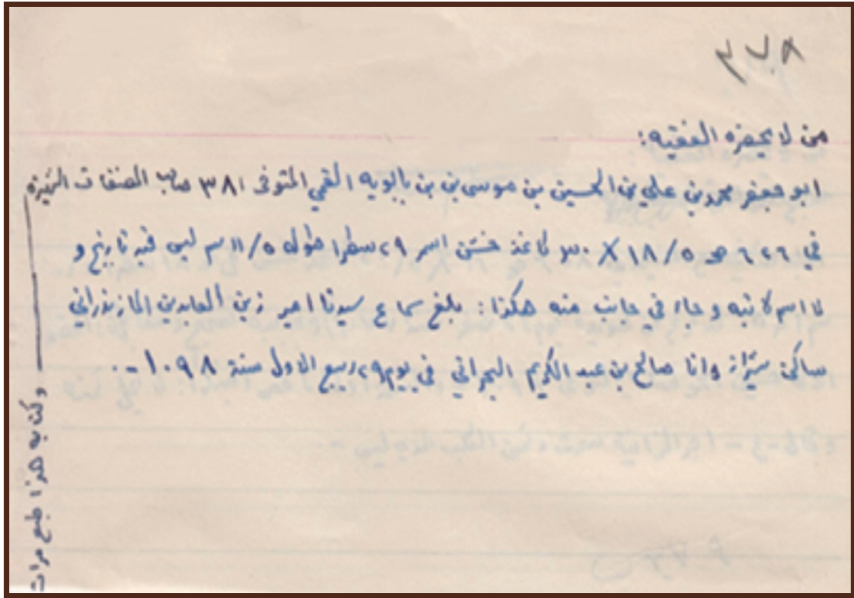 ٣٧٨
من لا يحضره الفقيه:
ابو جعفر محمد بن علي بن الحسين بن موسى بن بن بابويه القمي المتوفى ٣٨١ صاحب المصنفات الشهيرة
في ٦٢٦ ص ١٨/٥ × ٣٠ كاغذ خشن اسمر ٢٩ سطرا طوله ١١/٥ سم ليس فيه تاريخ و
لا اسم كاتبه و جاء في جانب منه هكذا: بلغ سماع سيدنا امير زين العابدين المازندراني
ساكن شيراز وانا صالح بن عبد الكريم البحراني في يوم ٢٩ ربيع الاول سنة ١٠٩٨ -٠
وكتابه هذا طبع مرات